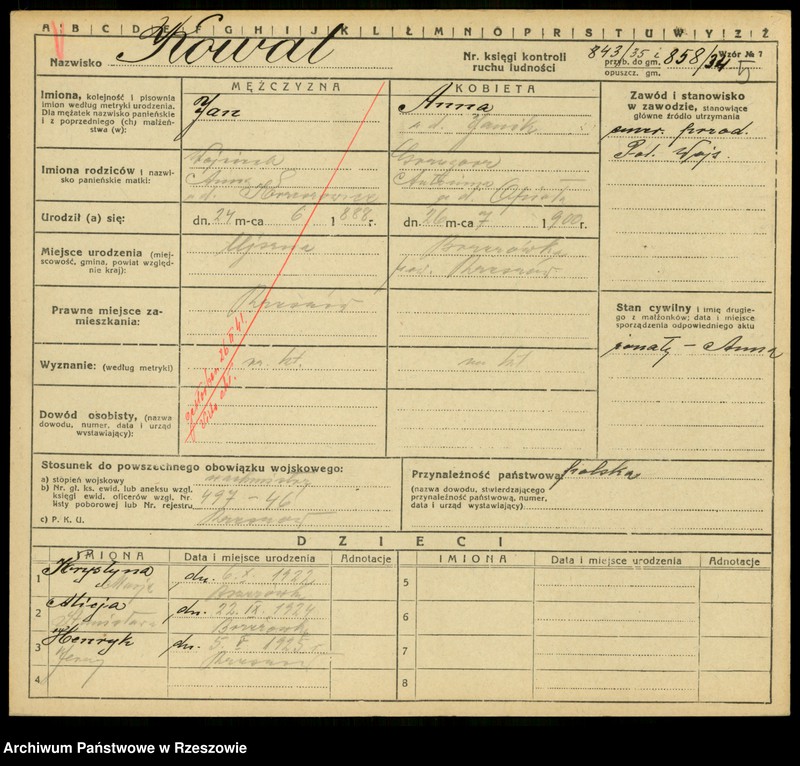 A B C D E F G H I J K L Ł M N O P R S T U W Y Z Ź
Nazwisko Kowal
Nr. księgi kontroli ruchu ludności
843/35 i
przyb. do gm. 858/34
opuszcz. gm.
Wzór № 7
5
MĘŻCZYZNA
KOBIETA
Imiona, kolejność i pisownia
imion według metryki urodzenia.
Dla mężatek nazwisko panieńskie
i z poprzedniej (ch) małżeń-
stwa (w):
Jan
Anna
z d. Janik
Zawód i stanowisko
w zawodzie, stanowiące
główne źródło utrzymania
emer. przod.
Pol. Woj.
Imiona rodziców i nazwi-
sko panieńskie matki:
Wojciech
Anna
Grzegorz
Antonina
Urodził (a) się:
dn. 24 m-ca 6 1888 r.
dn. 26 m-ca 7 1900 r.
Miejsce urodzenia (miej-
scowość, gmina, powiat względ-
nie kraj):
pow. Rzeszów
Prawne miejsce za-
mieszkania:
Rzeszów
Stan cywilny i imię drugie-
go z małżonków; data i miejsce
sporządzenia odpowiedniego aktu
żonaty – Anna
Wyznanie: (według metryki)
rz. kt.
rz. kt.
Dowód osobisty, (nazwa
dowodu, numer, data i urząd
wystawiający):
Stosunek do powszechnego obowiązku wojskowego:
a) stopień wojskowy
b) Nr. gł. ks. ewid. lub aneksu wzgl.
księgi ewid. oficerów wzgl. Nr.
listy poborowej lub Nr. rejestru
497 – 46
c) P. K. U. Rzeszów
Przynależność państwowa: polska
(nazwa dowodu, stwierdzającego
przynależność państwową, numer,
data i urząd wystawiający)
DZIECI
IMIONA
Data i miejsce urodzenia
Adnotacje
IMIONA
Data i miejsce urodzenia
Adnotacje
1 Krystyna
Marja
dn. 6. X. 1922
2 Alicja
Stanisława
dn. 22. IX. 1924
3 Henryk
Jerzy
dn. 5. X 1925 r
Rzeszów
4
5
6
7
8
Archiwum Państwowe w Rzeszowie